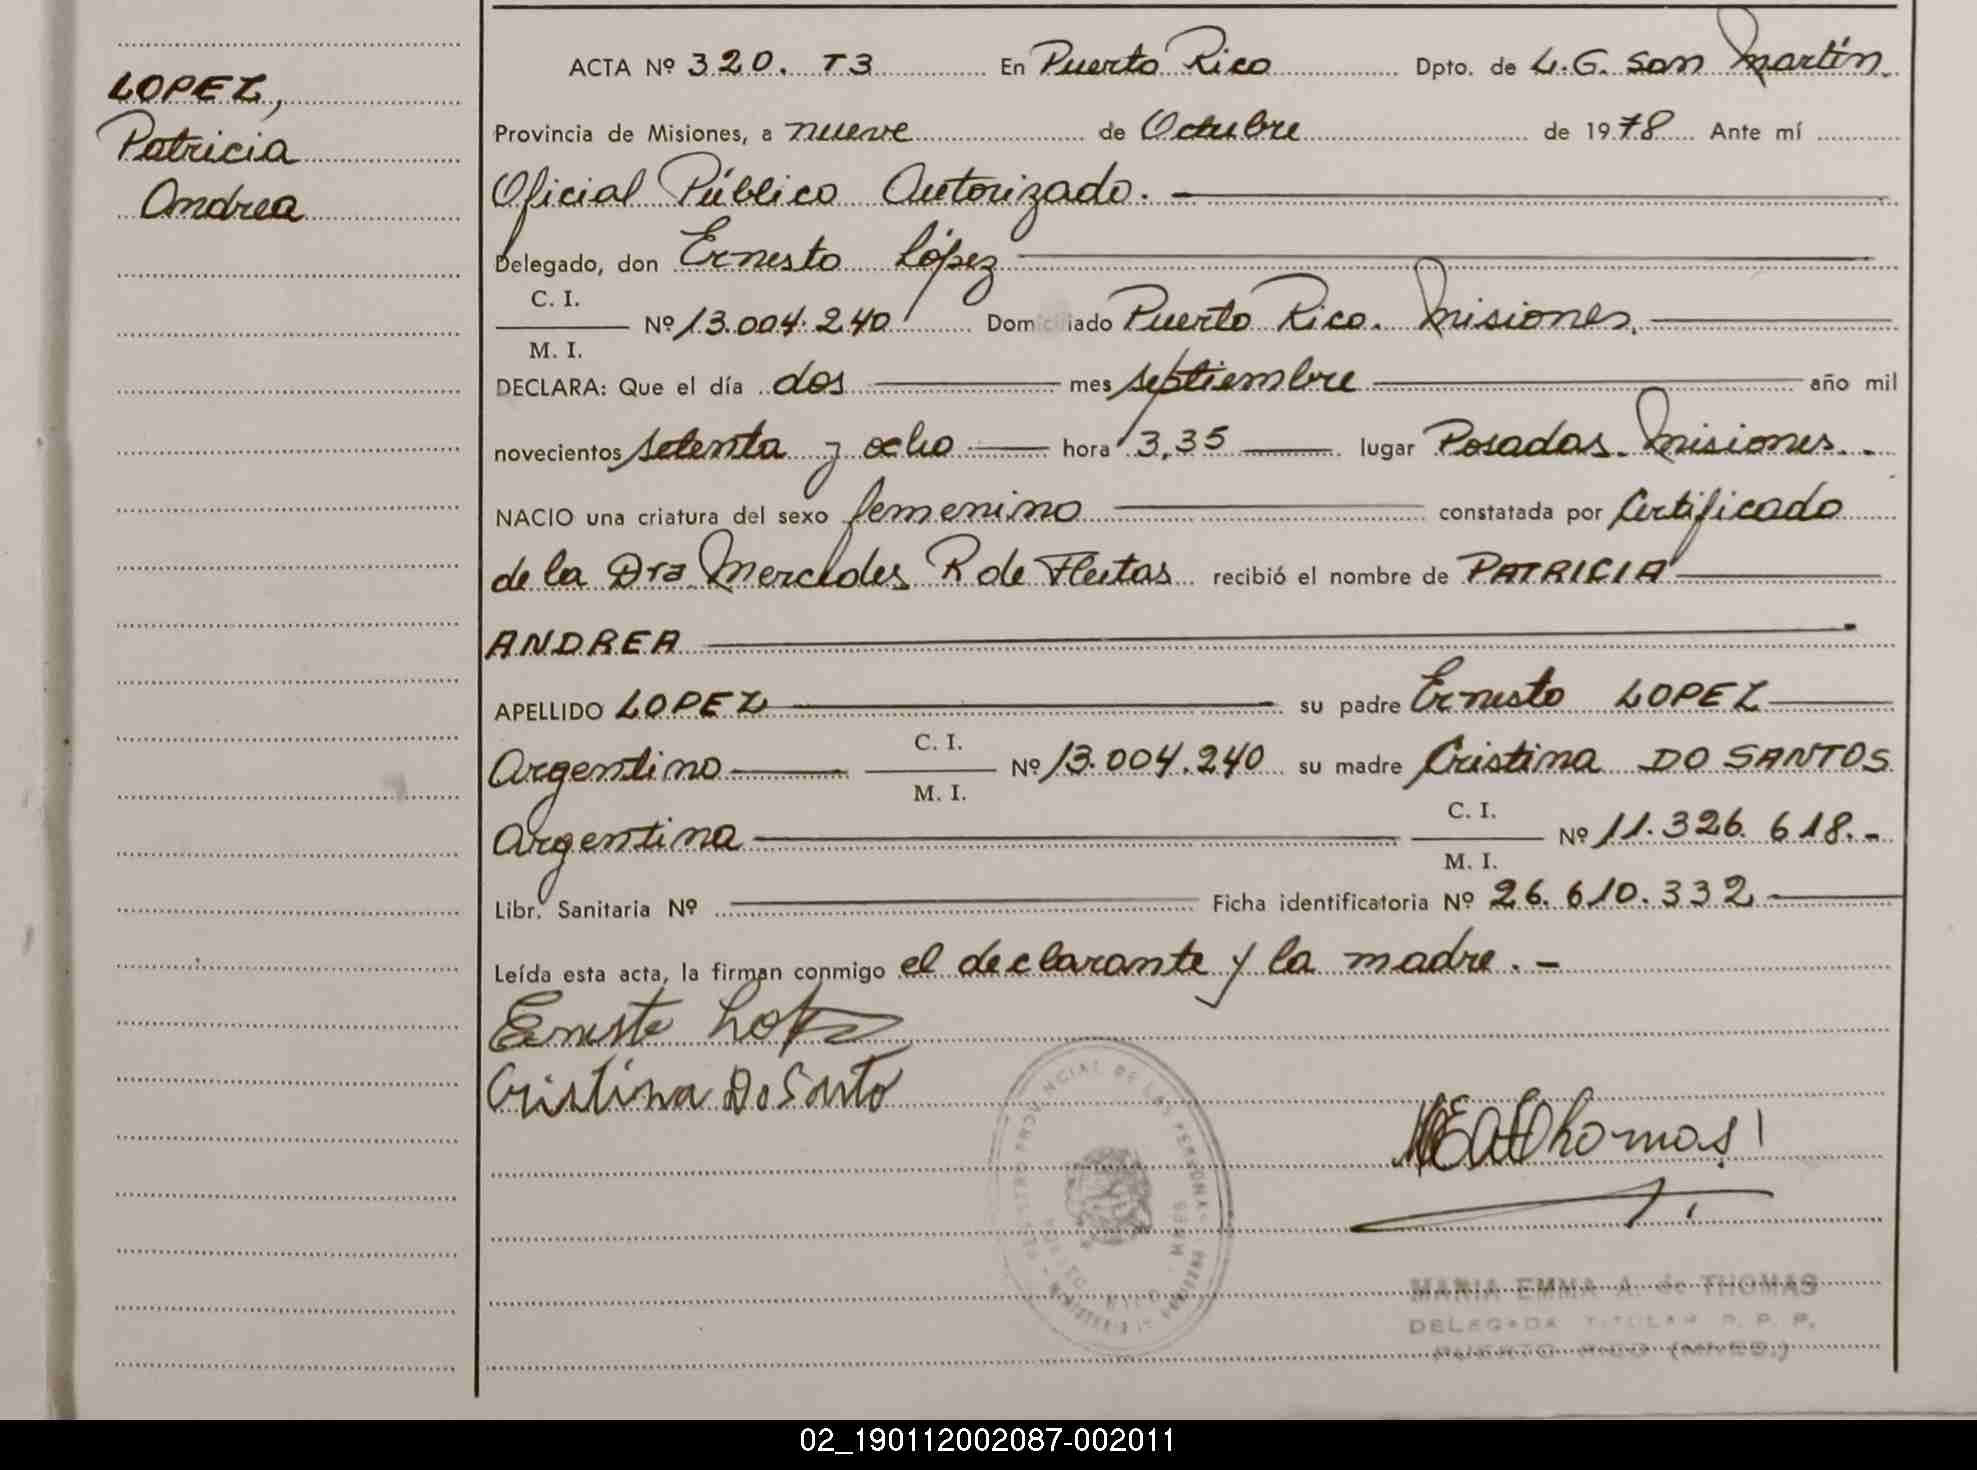 LOPEZ,
Patricia
Andrea
ACTA Nº 320. T3 En Puerto Rico Dpto. de L.G. San Martín.
Provincia de Misiones, a nueve de Octubre de 1978 Ante mí
Oficial Público Autorizado. -
Delegado, don Ernesto López
C. I.
Nº 13.004.240 Domiciliado Puerto Rico. Misiones.
M. I.
DECLARA: Que el día dos mes septiembre año mil
novecientos setenta y ocho hora 3,35 lugar Posadas. Misiones. -
NACIO una criatura del sexo femenino constatada por Certificado
de la Dra. Mercedes R de Fleitas recibió el nombre de PATRICIA
ANDREA
APELLIDO LOPEZ su padre Ernesto LOPEZ
Argentino C. I. Nº 13.004.240 su madre Cristina DO SANTOS
M. I.
Argentina C. I. Nº 11.326.618. -
M. I.
Libr. Sanitaria Nº Ficha identificatoria Nº 26.610.332
Leída esta acta, la firman conmigo el declarante y la madre. -
Ernesto Lopez
Cristina Do Santo
Thomas
REGISTRO PROVINCIAL DE LAS PERSONAS
MARIA EMMA A. de THOMAS
DELEGADA TITULAR R. P. P.
PUERTO RICO (MNES.)
02_190112002087-002011